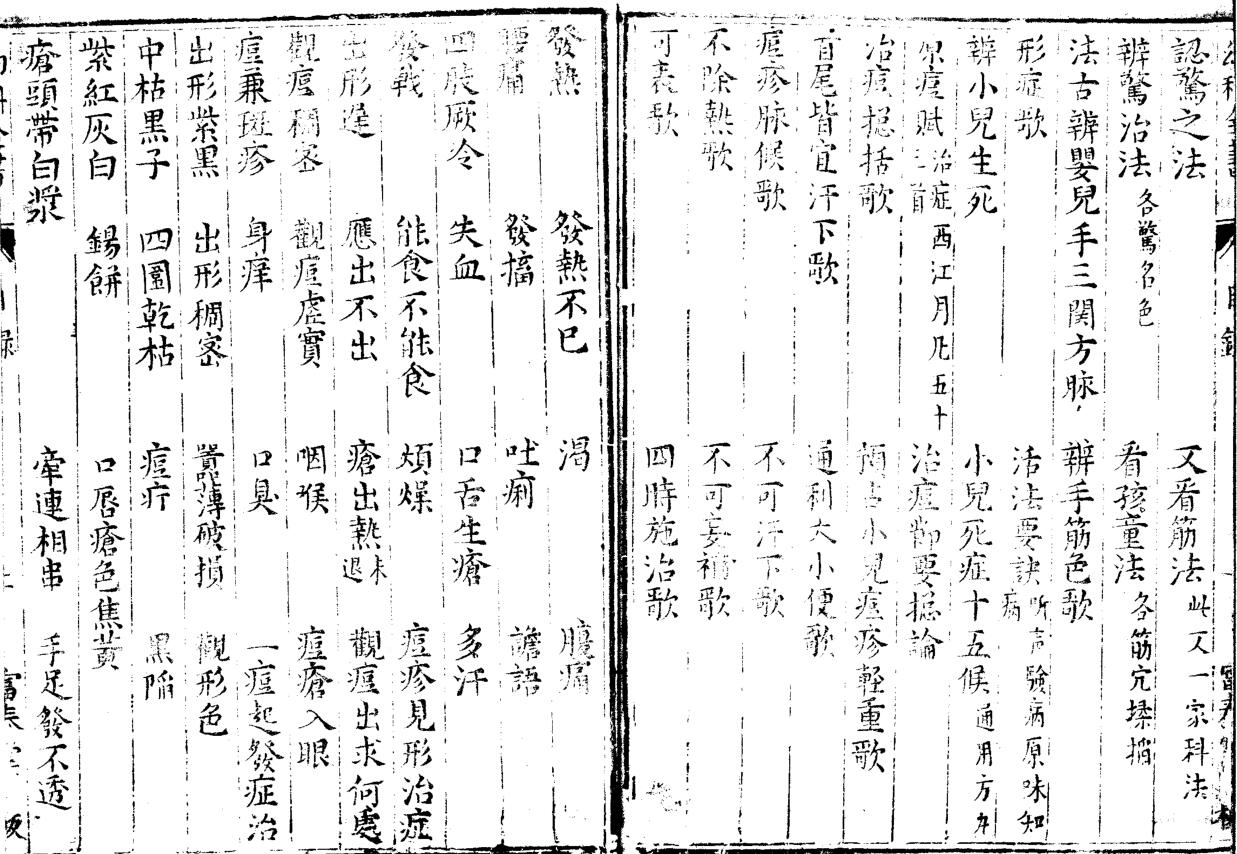 認驚之法 又看筋法 此又一家科法
辨驚治法 各驚名色 看孩童法 各筋穴揉掐
法古辨嬰兒手三関方脉 辨手筋色歌
形症歌 活法要訣 听声驗病原味知病
辨小兒生死 小兒死症十五候 通用方
原痘賦二首 治症西江月凡五十 治痘節要捴論
治痘捴括歌 小兒痘疹軽重歌
首尾皆宜汗下歌 通利大小便歌
痘疹脉候歌 不可汗下歌
不除熱歌 不可妄補歌
可表歌 四時施治歌
發熱 發熱不已 渴 腹痛
腰痛 發搐 吐痢 譫語
四肢厥冷 失血 口舌生瘡 多汗
發戰 能食不能食 煩燥 痘疹見形治症
出形遲 應出不出 瘡出熱未退 觀痘出求何處
觀痘稠密 觀痘虛實 咽喉 痘瘡入眼
痘兼斑疹 身痒 口臭 一痘起發症治
出形紫黑 出形稠密 嚣薄破損 觀形色
中枯黑子 四圍乾枯 痘疔 黑陷
紫紅灰白 錫餅 口唇瘡色焦黃
瘡頭帶白漿 牽連相串 手足發不透